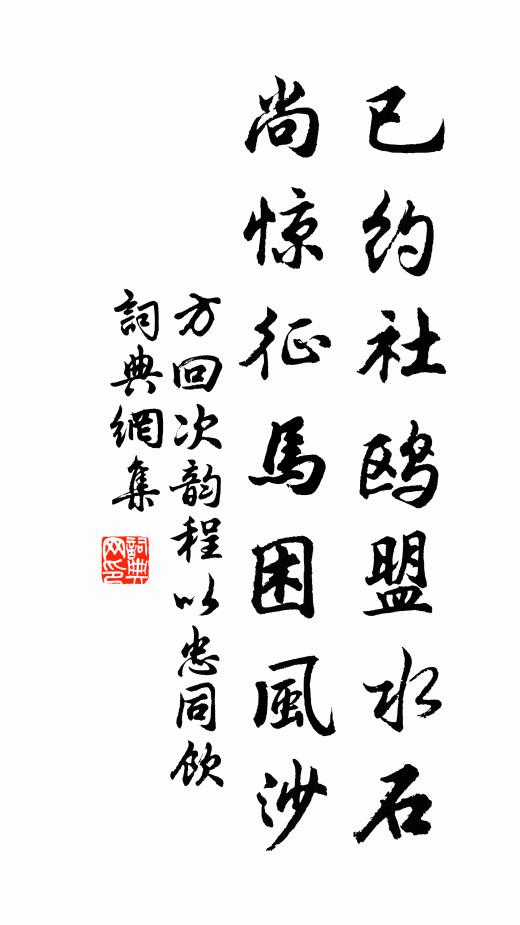 已约社鸥盟水石
尚惊征馬困風沙
方回次韵程以忠同飲
詞典網集
詞典网印